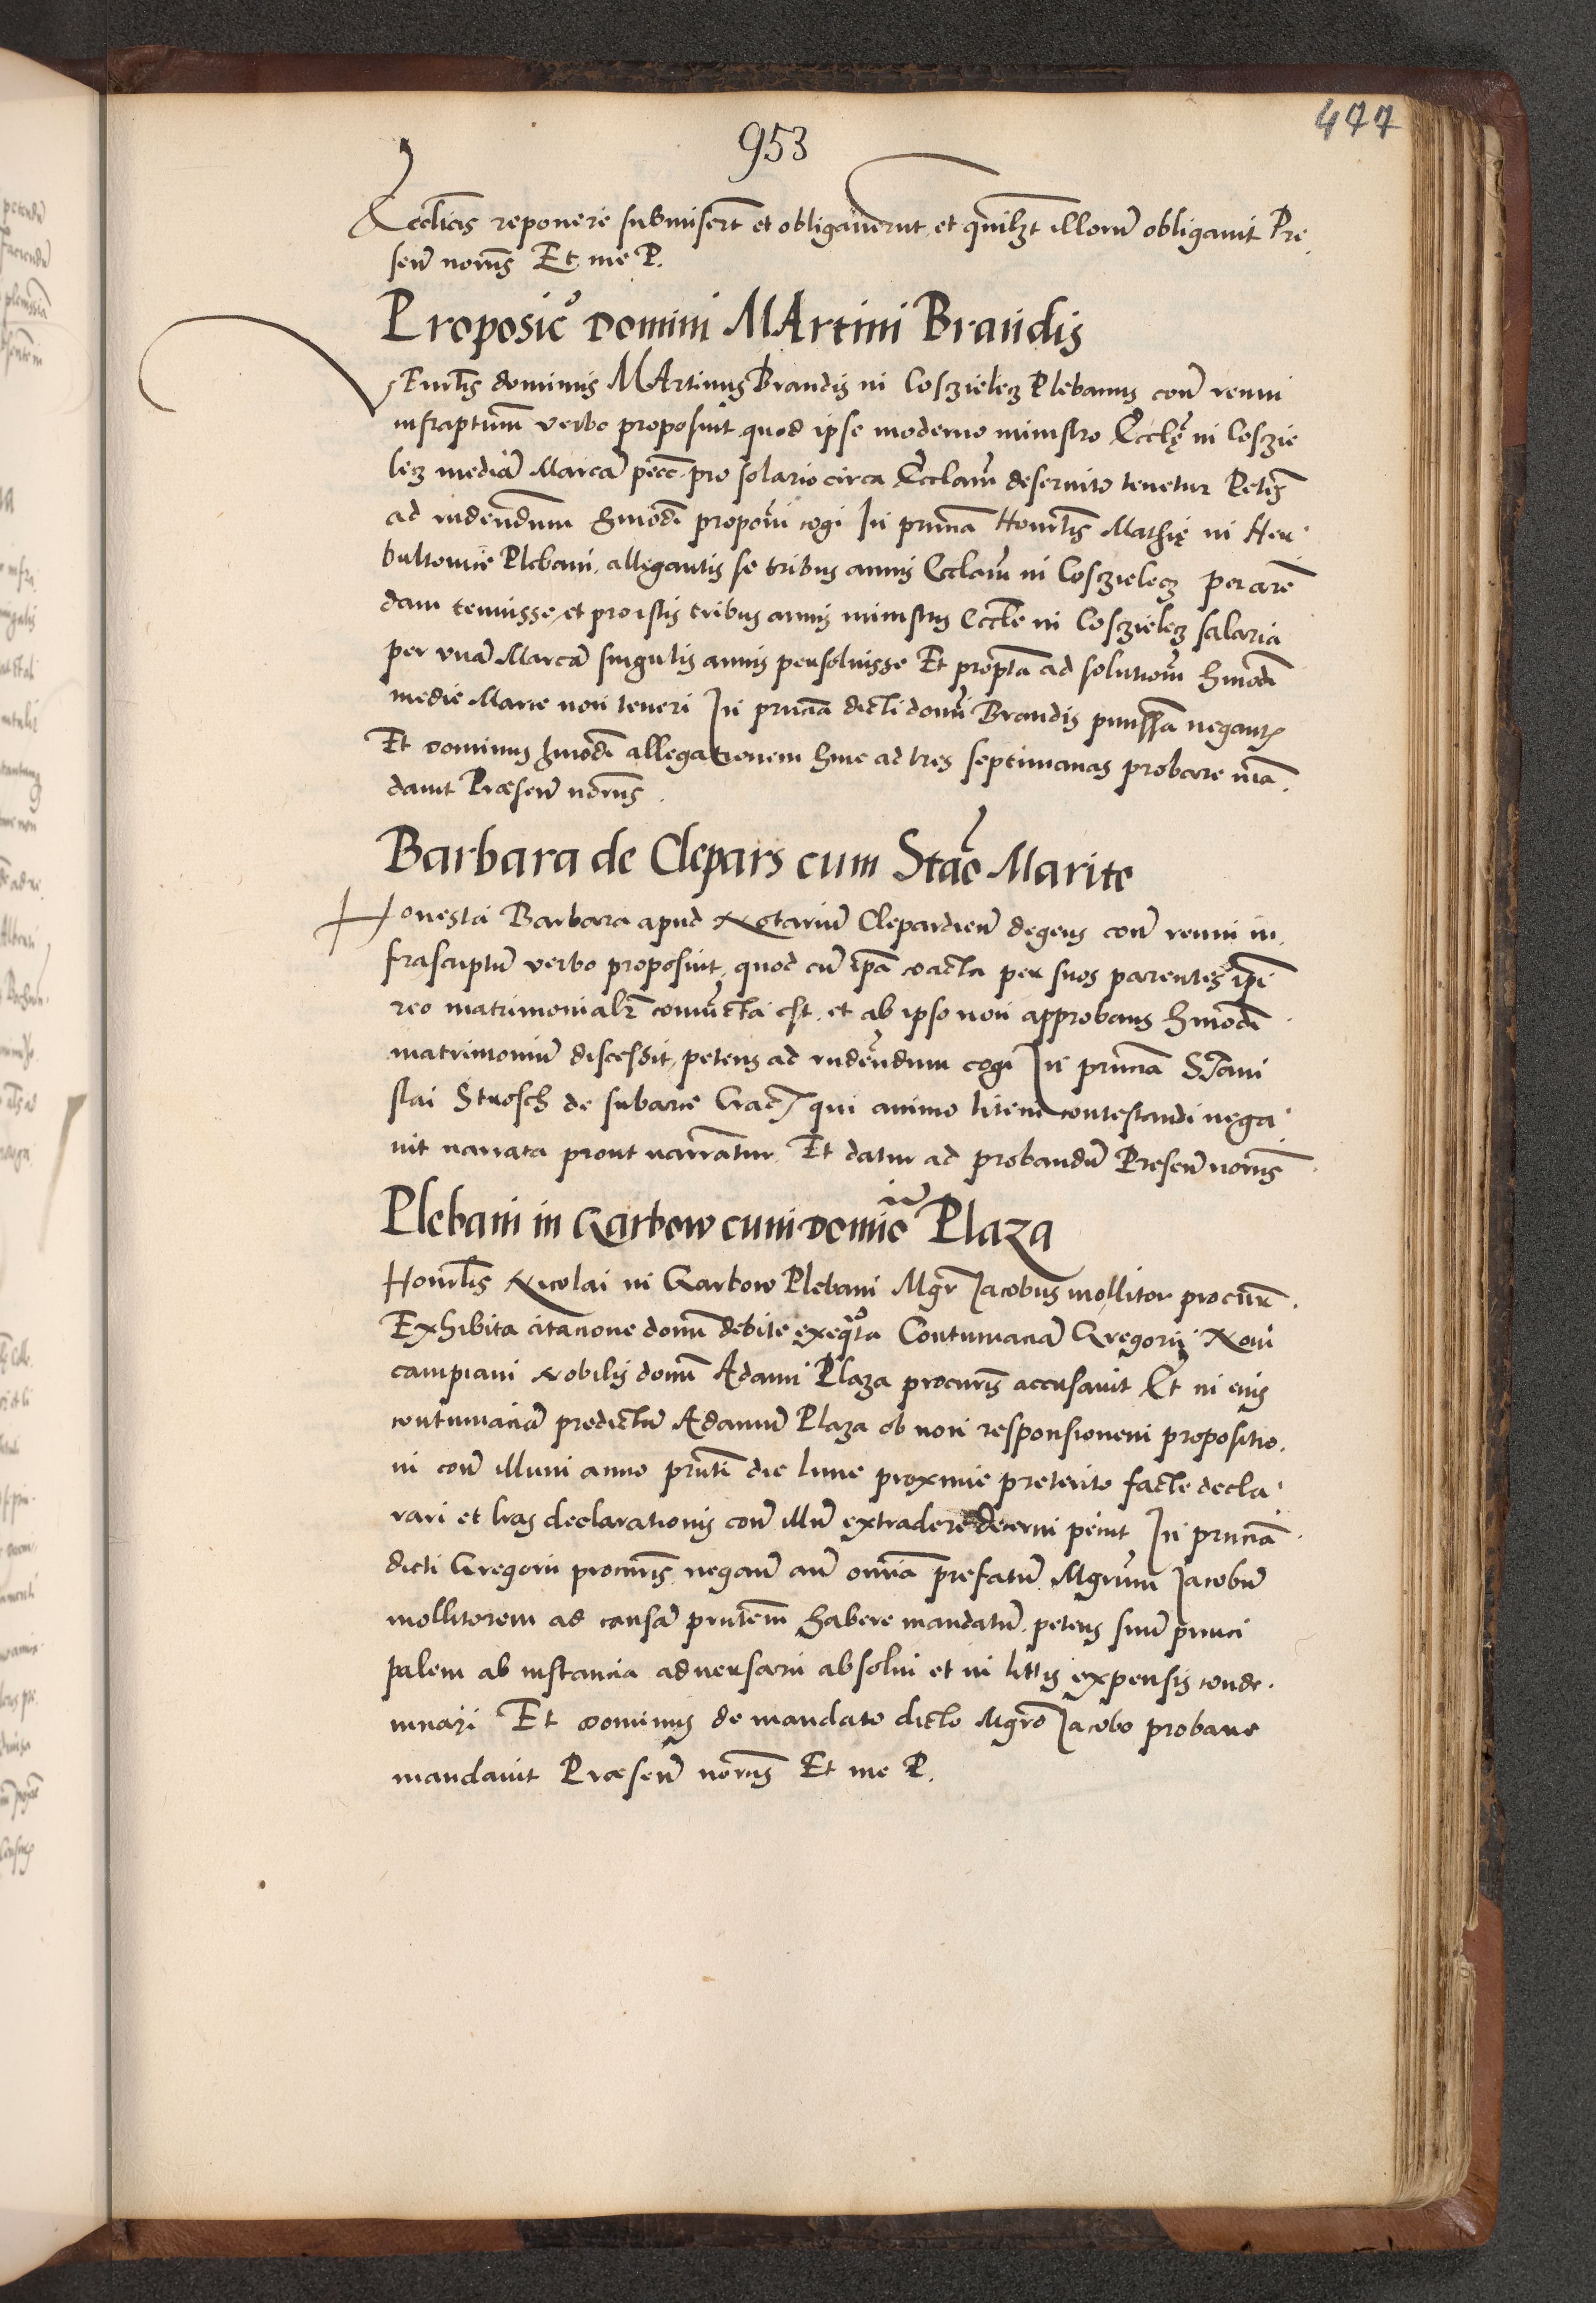 477
953
Ecclicas reponere submisert et obligaverut, et quilzt illorum obligavit Pre,
sen norijs Et me P.
Proposic̃o domini MArtini Brandis
Venrlis dominus MArtinus Brandis in Cosczielecz Plebanus con reum
infraptum verbo proposuit quod ipse moderno ministro Ecclę in Coszcie
lecz mediã Marcã pecc. pro solario circa Ecclam deservito tenetur Petes
ad rndendum hmodi proponi cogi In pnciã Honrlis Mathię in Her
bultowice Plebani, allegantis se tribus annis Ecclam in Cosczielecz per aren
dam tenuisse, et pro istis tribus annis ministris Eccle in Cosczielecz salaria
per unã Marcã singulis annis persolvisse Et propta ad solutiom hmodi
medie Marce non teneri In pncia dicti domi Brandis premissa negant
Et dominus hmodi allegationem hinc ad tres septimanas probare man
davit Præsen norijs.
Barbara de Clepars cum Stac̃ Marito
Honesta Barbara apud Notarium Clepardien degens con reum in
frascriptu verbo proposuit, quod cu ipa coacta per suos parentes ipi
reo matrimonialr coniuncta est. et ab ipso non approbans hmodi
matrimoniu discessit, petens ad rndendum cogi In pncia STani
slai Strosch de subarce Crac qui animo litem contestandi nega
vit narrata prout narrantur. Et datur ad probandu Presen norijs
Plebani in Garbow cum domino Plaza
Honrlis Nicolai in Garbow Plebani Mgr Jacobus mollitor procur.
Exhibita citacione domi debite exeqta Contumaciã Gregorij Novi
campiani Nobilis domi Adami Plaza procuris accusavit Et in eius
contumaciã predictu Adamu Plaza ob non responsionem propositio,
ni con illum anno pnti die lune proxime preterito facte decla
rari et lras declarationis con illu extradere decerni peciit In pnciã
dicti Gregorij procuris negan an omia prefatu Mgrum Jacobu
mollitorem ad causã pntem habere mandatu. petens suu princi
palem ab instancia adversarij absolvi et in littis expensis conde,
mnari Et dominus de mandato dicto Mgro Jacobo probare
mandavit Præsen norijs Et me P.